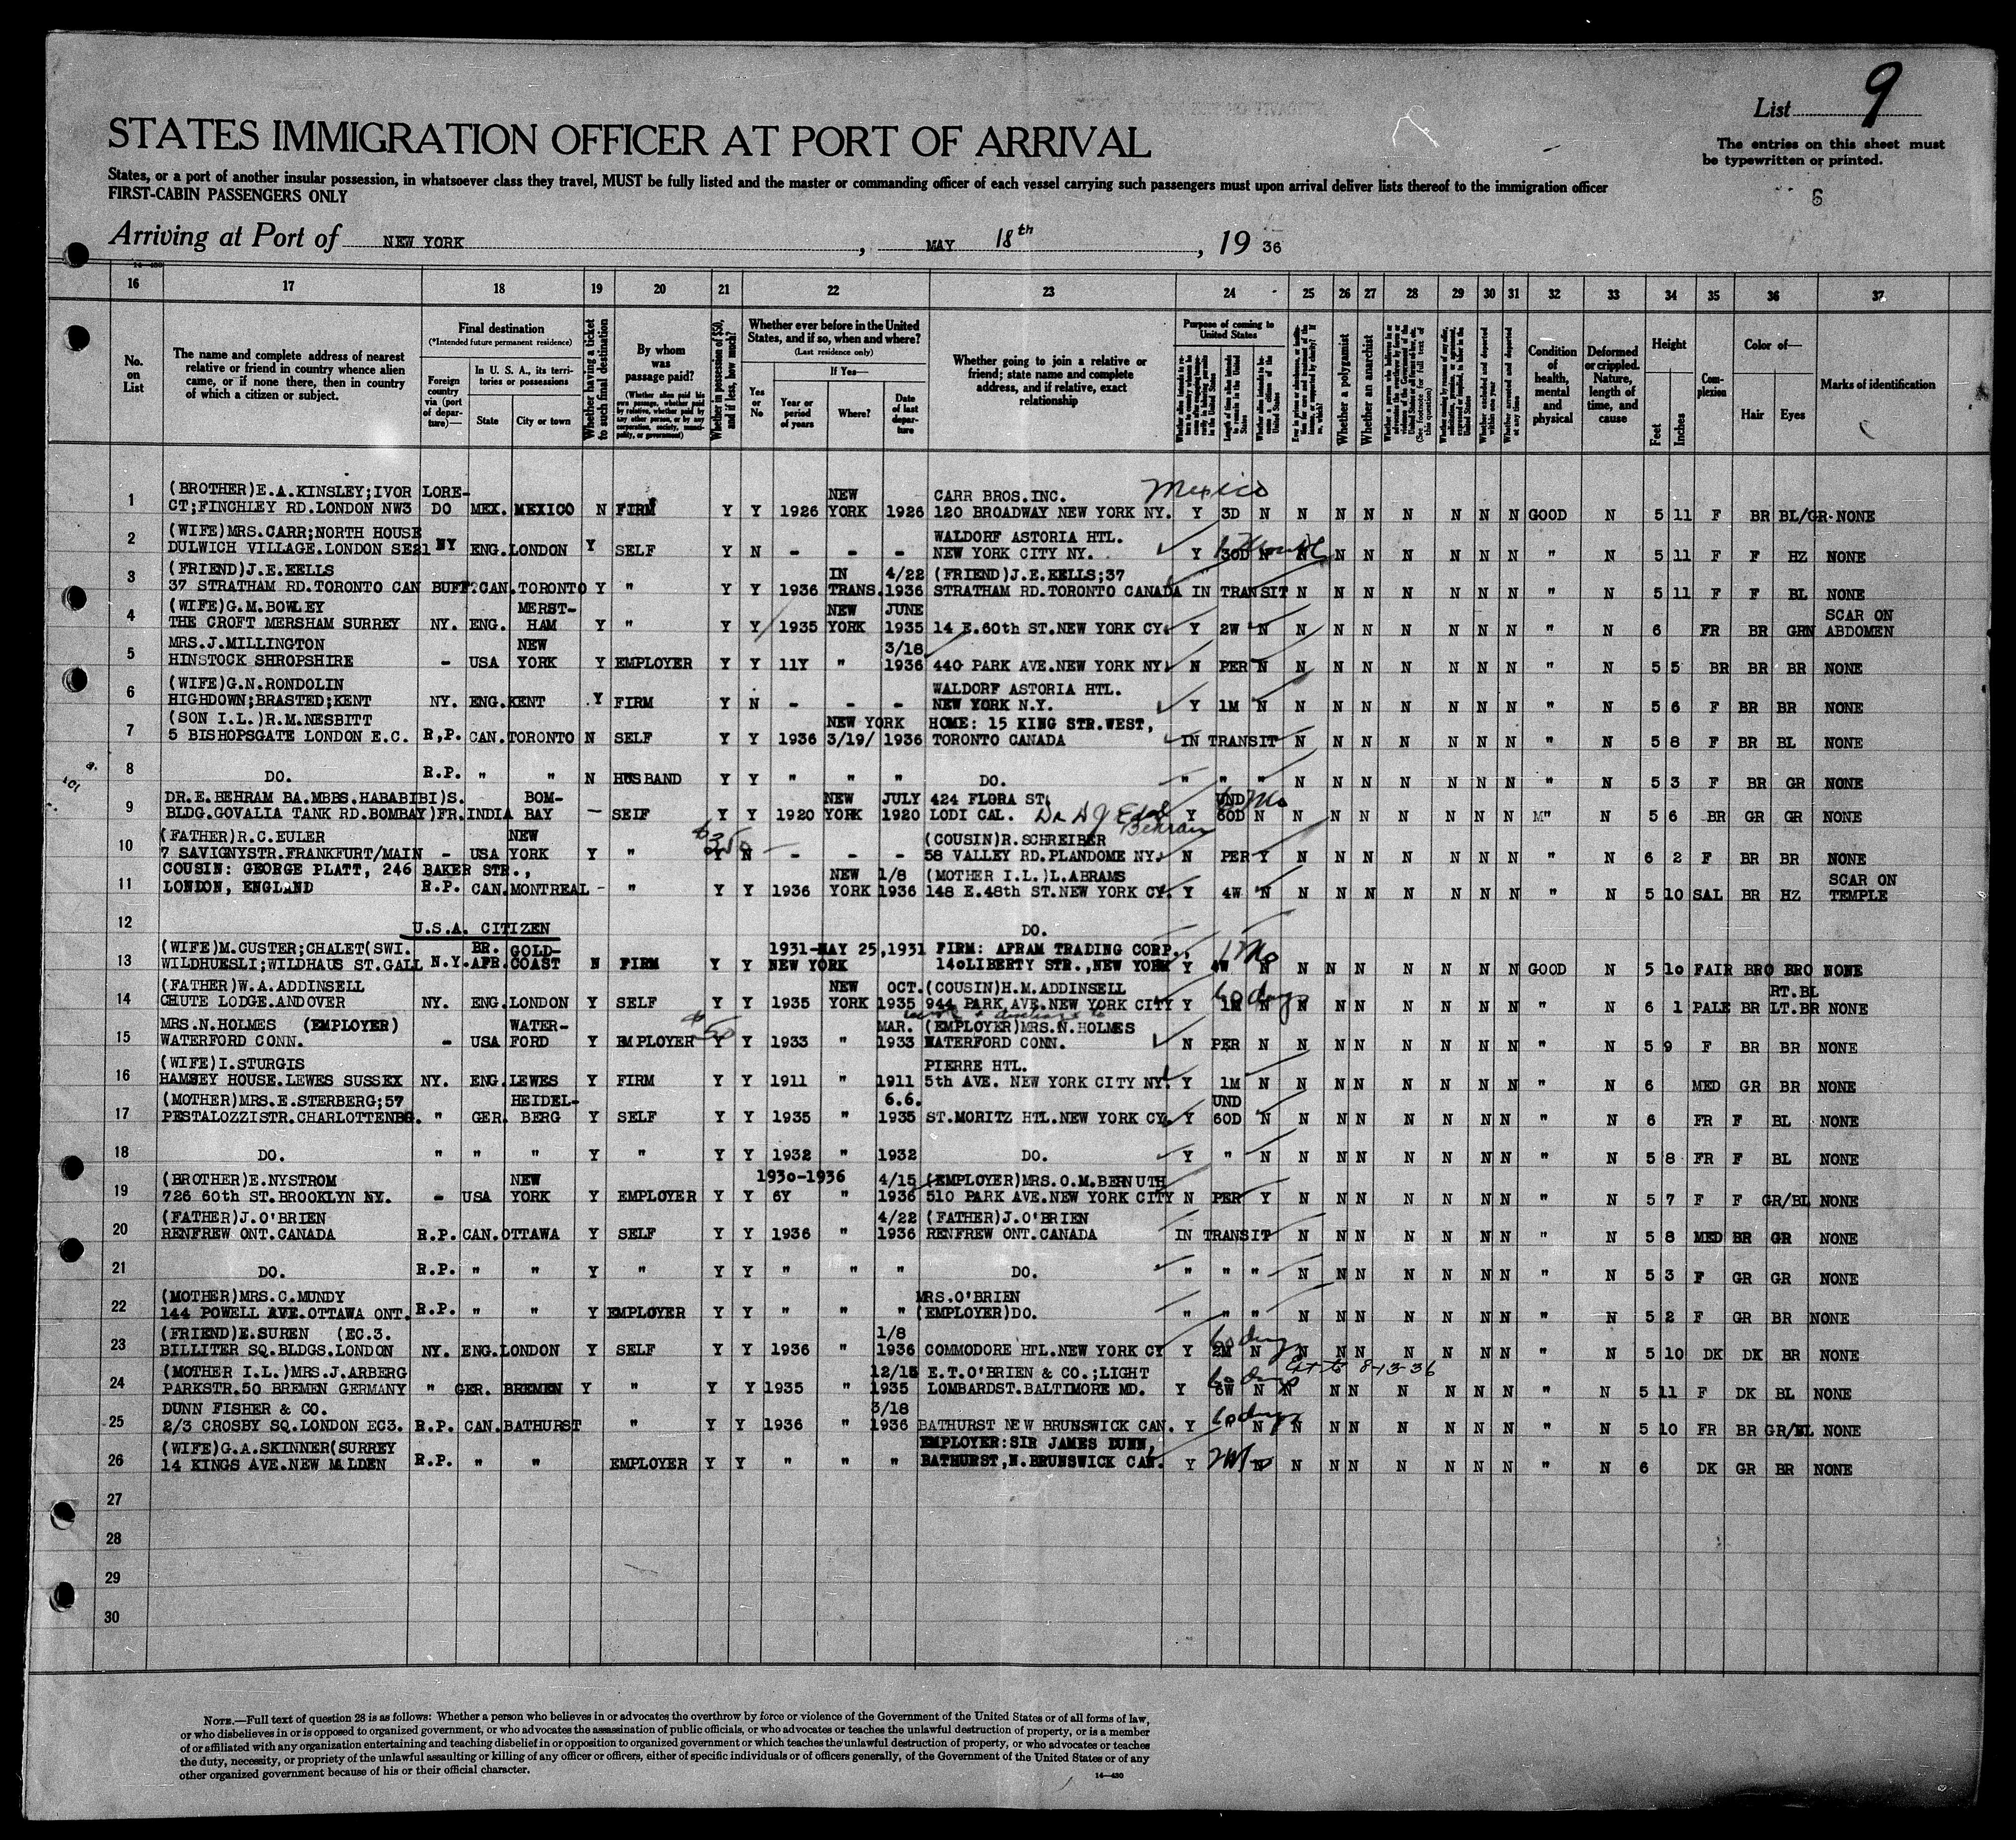 List 9
STATES IMMIGRATION OFFICER AT PORT OF ARRIVAL
The entries on this sheet must
be typewritten or printed.
States, or a port of another insular possession, in whatsoever class they travel, MUST be fully listed and the master or commanding officer of each vessel carrying such passengers must upon arrival deliver lists thereof to the immigration officer
FIRST-CABIN PASSENGERS ONLY
6
Arriving at Port of NEW YORK, MAY 18th, 19 36
16 17 18 19 20 21 22 23 24 25 26 27 28 29 30 31 32 33 34 35 36 37
No. on List
The name and complete address of nearest relative or friend in country whence alien came, or if none there, then in country of which a citizen or subject.
Final destination
(*Intended future permanent residence)
Foreign country via (port of departure)—
In U. S. A., its territories or possessions
State
City or town
Whether having a ticket to such final destination
By whom was passage paid?
(Whether alien paid his own passage, whether paid by relative, whether paid by any other person, or by any corporation, society, municipality, or government)
Whether in possession of $50, and if less, how much?
Whether ever before in the United States, and if so, when and where?
(Last residence only)
Yes or No
If Yes—
Year or period of years
Where?
Date of last departure
Whether going to join a relative or friend; state name and complete address, and if relative, exact relationship
Purpose of coming to United States
Length of time alien intends to remain in the United States
Whether a polygamist
Whether an anarchist
(See footnote for full text of this question)
Whether arrested and deported at any time
Condition of health, mental and physical
Deformed or crippled. Nature, length of time, and cause
Height
Feet
Inches
Complexion
Color of—
Hair
Eyes
Marks of identification
1 (BROTHER)E.A.KINSLEY;IVOR LORE- NEW CARR BROS.INC. Mexico
CT;FINCHLEY RD.LONDON NW3 DO MEX. MEXICO N FIRM Y Y 1926 YORK 1926 120 BROADWAY NEW YORK NY. Y 3D N N N N N N N N GOOD N 5 11 F BR BL/GR NONE
2 (WIFE)MRS.CARR;NORTH HOUSE WALDORF ASTORIA HTL.
DULWICH VILLAGE.LONDON SE21 NY ENG.LONDON Y SELF Y N - - - NEW YORK CITY NY. Y 30D N N N N N N N N " N 5 11 F F HZ NONE
3 (FRIEND)J.E.EELLS IN 4/22 (FRIEND)J.E.EELLS;37
37 STRATHAM RD.TORONTO CAN BUFF.CAN.TORONTO Y " Y Y 1936 TRANS.1936 STRATHAM RD.TORONTO CANADA IN TRANSIT N N N N N N N " N 5 11 F F BL NONE
4 (WIFE)G.M.BOWLEY MERST- NEW JUNE SCAR ON
THE CROFT MERSHAM SURREY NY. ENG. HAM Y " Y Y 1935 YORK 1935 14 E.60th ST.NEW YORK CY. Y 2W N N N N N N N N " N 6 FR BR GRN ABDOMEN
5 MRS.J.MILLINGTON NEW 3/18
HINSTOCK SHROPSHIRE - USA YORK Y EMPLOYER Y Y 11Y " 1936 440 PARK AVE.NEW YORK NY. N PER N N N N N N N N " N 5 5 BR BR BR NONE
6 (WIFE)G.N.RONDOLIN WALDORF ASTORIA HTL.
HIGHDOWN;BRASTED;KENT NY. ENG.KENT Y FIRM Y N - - - NEW YORK N.Y. Y 1M N N N N N N N N " N 5 6 F BR BR NONE
7 (SON I.L.)R.M.NESBITT NEW YORK HOME: 15 KING STR.WEST,
5 BISHOPSGATE LONDON E.C. R,P. CAN.TORONTO N SELF Y Y 1936 3/19/ 1936 TORONTO CANADA IN TRANSIT N N N N N N N " N 5 8 F BR BL NONE
8 DO. R.P. " " N HUSBAND Y Y " " " DO. " " " N N N N N N N " N 5 3 F BR GR NONE
9 DR.E.BEHRAM BA.MBBS.HABABIBI)S. BOM- NEW JULY 424 FLORA ST. UND
BLDG.GOVALIA TANK RD.BOMBAY)FR.INDIA BAY — SELF Y Y 1920 YORK 1920 LODI CAL. Y 60D N N N N N N N N M" N 5 6 BR GR GR NONE
Behram
10 (FATHER)R.C.EULER NEW $350 (COUSIN)R.SCHREIBER
7 SAVIGNYSTR.FRANKFURT/MAIN - USA YORK Y " Y N - - - 58 VALLEY RD.PLANDOME NY. N PER Y N N N N N N N " N 6 2 F BR BR NONE
11 COUSIN: GEORGE PLATT, 246 BAKER STR., NEW 1/8 (MOTHER I.L.)L.ABRAMS SCAR ON
LONDON, ENGLAND R.P. CAN.MONTREAL - " Y Y 1936 YORK 1936 148 E.48th ST.NEW YORK CY. Y 4W N N N N N N N N " N 5 10 SAL BR HZ TEMPLE
12 U.S.A. CITIZEN DO.
13 (WIFE)M.CUSTER;CHALET(SWI. BR. GOLD- 1931-MAY 25,1931 FIRM: AFRAM TRADING CORP., 1 Mo
WILDHUESLI;WILDHAUS ST.GALL N.Y.AFR.COAST N FIRM Y Y NEW YORK 14oLIBERTY STR.,NEW YORK Y 4W N N N N N N N N GOOD N 5 10 FAIR BRO BRO NONE
14 (FATHER)W.A.ADDINSELL NEW OCT.(COUSIN)H.M.ADDINSELL 60 days RT.BL
CHUTE LODGE.ANDOVER NY. ENG.LONDON Y SELF Y Y 1935 YORK 1935 944 PARK AVE.NEW YORK CITY Y 1M N N N N N N N N " N 6 1 PALE BR LT.BR NONE
15 MRS.N.HOLMES (EMPLOYER) WATER- $50 MAR. (EMPLOYER)MRS.N.HOLMES
WATERFORD CONN. - USA FORD Y EMPLOYER Y Y 1933 " 1933 WATERFORD CONN. N PER N N N N N N N N " N 5 9 F BR BR NONE
16 (WIFE)I.STURGIS PIERRE HTL.
HAMSEY HOUSE.LEWES SUSSEX NY. ENG.LEWES Y FIRM Y Y 1911 " 1911 5th AVE. NEW YORK CITY NY. Y 1M N N N N N N N N " N 6 MED GR BR NONE
17 (MOTHER)MRS.E.STERBERG;57 HEIDEL- 6.6. UND
PESTALOZZISTR.CHARLOTTENBG. " GER. BERG Y SELF Y Y 1935 " 1935 ST.MORITZ HTL.NEW YORK CY. Y 60D N N N N N N N N " N 6 FR F BL NONE
18 DO. " " " Y " Y Y 1932 " 1932 DO. Y " N N N N N N N N " N 5 8 FR F BL NONE
19 (BROTHER)E.NYSTROM NEW 1930-1936 4/15 (EMPLOYER)MRS.O.M.BERNUTH
726 60th ST.BROOKLYN NY. - USA YORK Y EMPLOYER Y Y 6Y " 1936 510 PARK AVE.NEW YORK CITY N PER Y N N N N N N N " N 5 7 F F GR/BL NONE
20 (FATHER)J.O'BRIEN 4/22 (FATHER)J.O'BRIEN
RENFREW ONT.CANADA R.P. CAN.OTTAWA Y SELF Y Y 1936 " 1936 RENFREW ONT.CANADA IN TRANSIT N N N N N N N " N 5 8 MED BR GR NONE
21 DO. R.P. " " Y " Y Y " " " DO. " " " N N N N N N N " N 5 3 F GR GR NONE
22 (MOTHER)MRS.C.MUNDY MRS.O'BRIEN
144 POWELL AVE.OTTAWA ONT. R.P. " " Y EMPLOYER Y Y " " " (EMPLOYER)DO. " " " N N N N N N N " N 5 2 F GR BR NONE
23 (FRIEND)E.SUREN (EC.3. 1/8 60 days
BILLITER SQ.BLDGS.LONDON NY. ENG.LONDON Y SELF Y Y 1936 " 1936 COMMODORE HTL.NEW YORK CY Y 2M N N N N N N N N " N 5 10 DK DK BR NONE
24 (MOTHER I.L.)MRS.J.ARBERG 12/15 E.T.O'BRIEN & CO.;LIGHT 60 days Ext to 8-13-36
PARKSTR.50 BREMEN GERMANY " GER. BREMEN Y " Y Y 1935 " 1935 LOMBARDST.BALTIMORE MD. Y 6W N N N N N N N N " N 5 11 F DK BL NONE
25 DUNN FISHER & CO. 3/18 60 days
2/3 CROSBY SQ.LONDON EC3. R.P. CAN.BATHURST " Y Y 1936 " 1936 BATHURST NEW BRUNSWICK CAN. Y " N N N N N N N N " N 5 10 FR BR GR/BL NONE
26 (WIFE)G.A.SKINNER(SURREY EMPLOYER:SIR JAMES DUNN,
14 KINGS AVE.NEW MALDEN R.P. " " EMPLOYER Y Y " " " BATHURST,N.BRUNSWICK CAN. Y N N N N N N N N " N 6 DK GR BR NONE
27
28
29
30
NOTE.—Full text of question 28 is as follows: Whether a person who believes in or advocates the overthrow by force or violence of the Government of the United States or of all forms of law,
or who disbelieves in or is opposed to organized government, or who advocates the assassination of public officials, or who advocates or teaches the unlawful destruction of property, or is a member
of or affiliated with any organization entertaining and teaching disbelief in or opposition to organized government or which teaches the unlawful destruction of property, or who advocates or teaches
the duty, necessity, or propriety of the unlawful assaulting or killing of any officer or officers, either of specific individuals or of officers generally, of the Government of the United States or of any
other organized government because of his or their official character.
14—430